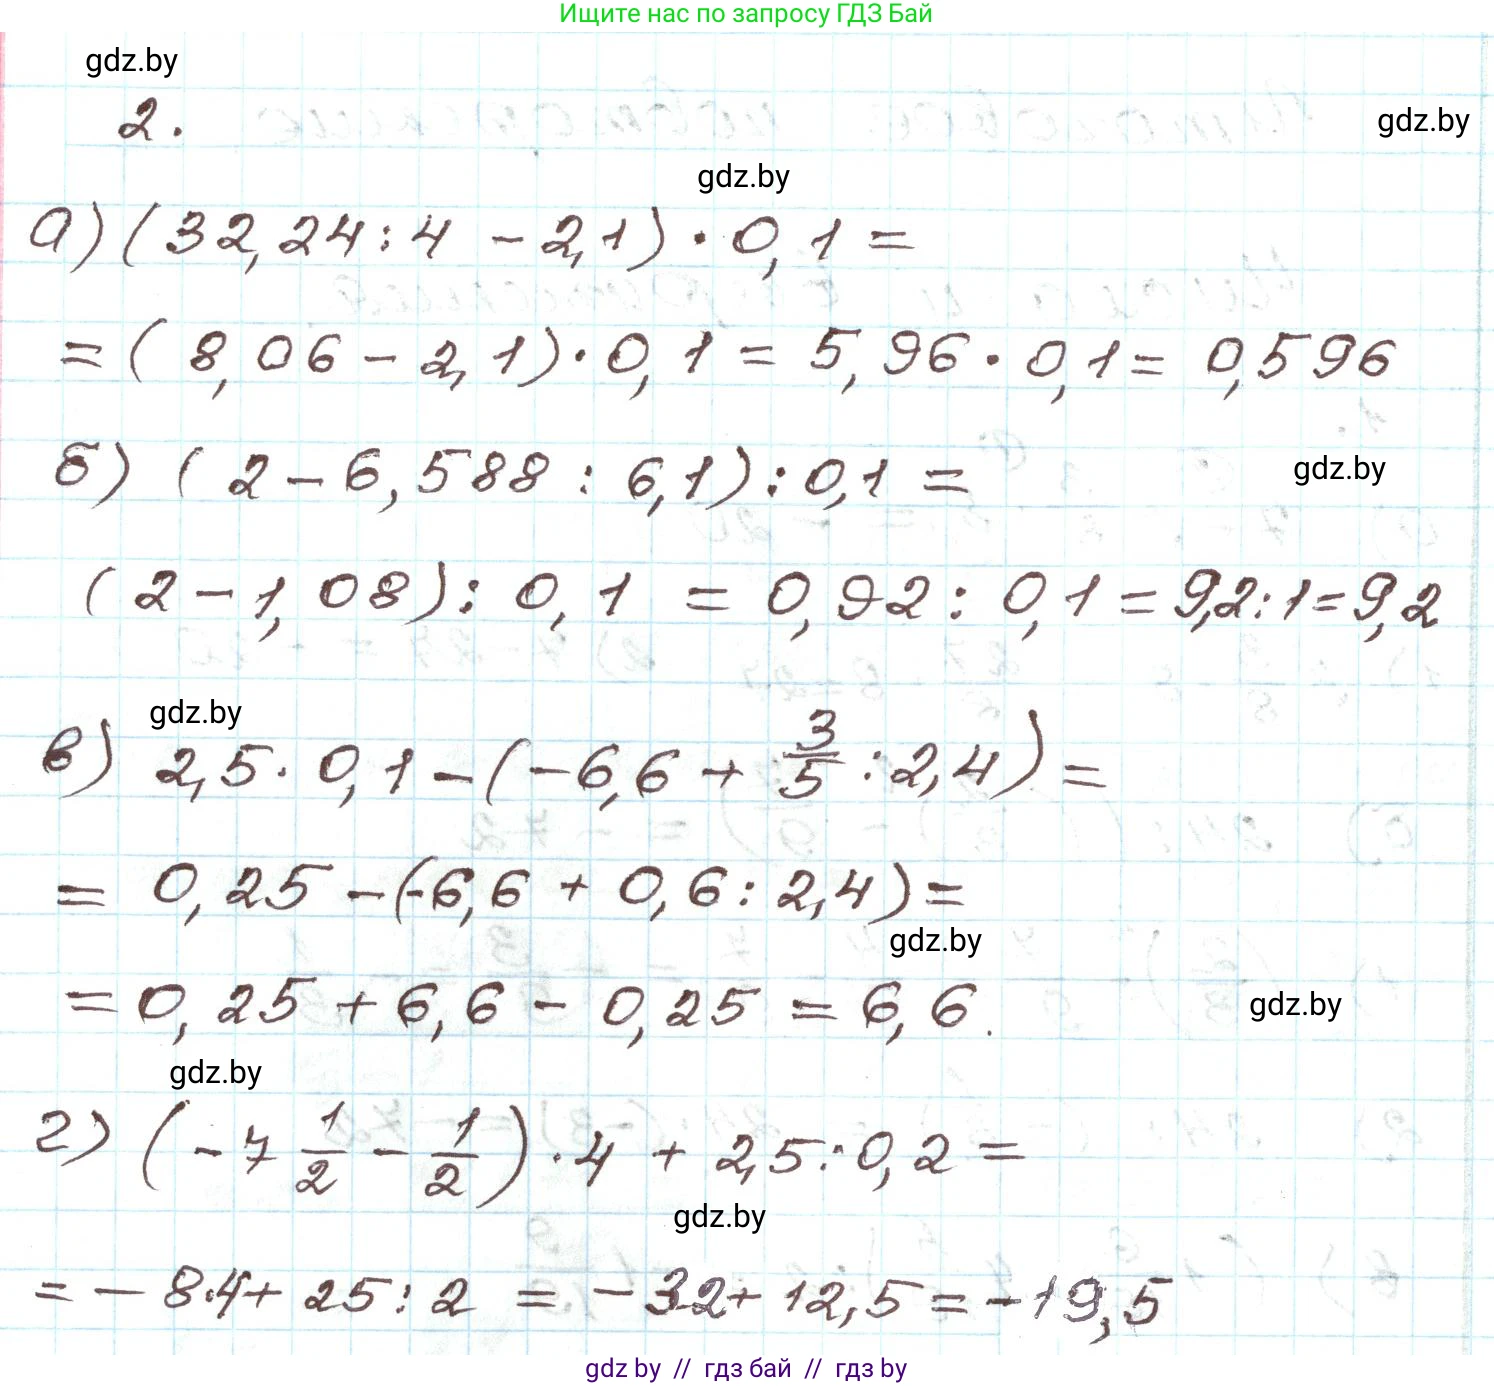 Ищите нас по запросу ГДЗ Бай
gdz.by
2.
gdz.by
gdz.by
а) (32,24:4 - 2,1) · 0,1 =
= (8,06 - 2,1) · 0,1 = 5,96 · 0,1 = 0,596
б) (2 - 6,588 : 6,1) : 0,1 =
gdz.by
(2 - 1,08) : 0,1 = 0,92 : 0,1 = 9,2:1 = 9,2
gdz.by
в) 2,5 · 0,1 - (-6,6 + 3/5 : 2,4) =
= 0,25 - (-6,6 + 0,6 : 2,4) =
gdz.by
= 0,25 + 6,6 - 0,25 = 6,6.
gdz.by
gdz.by
г) (-7 1/2 - 1/2) · 4 + 2,5 : 0,2 =
gdz.by
= - 8·4 + 25 : 2 = -32 + 12,5 = -19,5
gdz by // гдз бай // гдз by